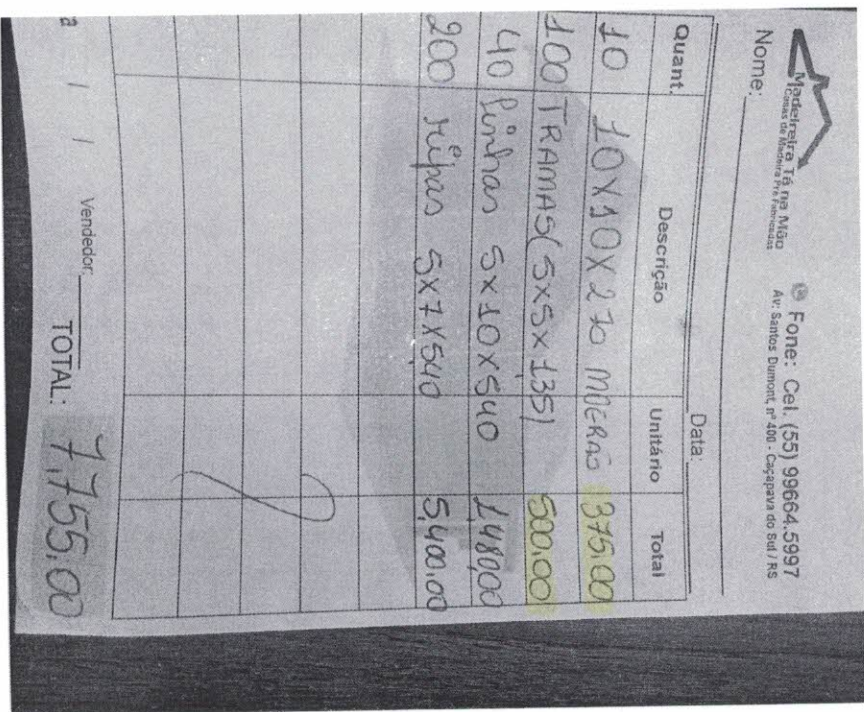 Madeireira Tá na Mão
Casas de Madeira Pré Fabricadas
Fone: Cel. (55) 99664.5997
Av: Santos Dumont, nº 400 - Caçapava do Sul / RS
Nome:
Data:
Quant. Descrição Unitário Total
10 10x10x270 MOERAS 375,00
100 TRAMAS (5x5x135) 500,00
40 linhas 5x10x540 1,480,00
200 ripas 5x7x540 5,400,00
a / / Vendedor: TOTAL: 7,755,00